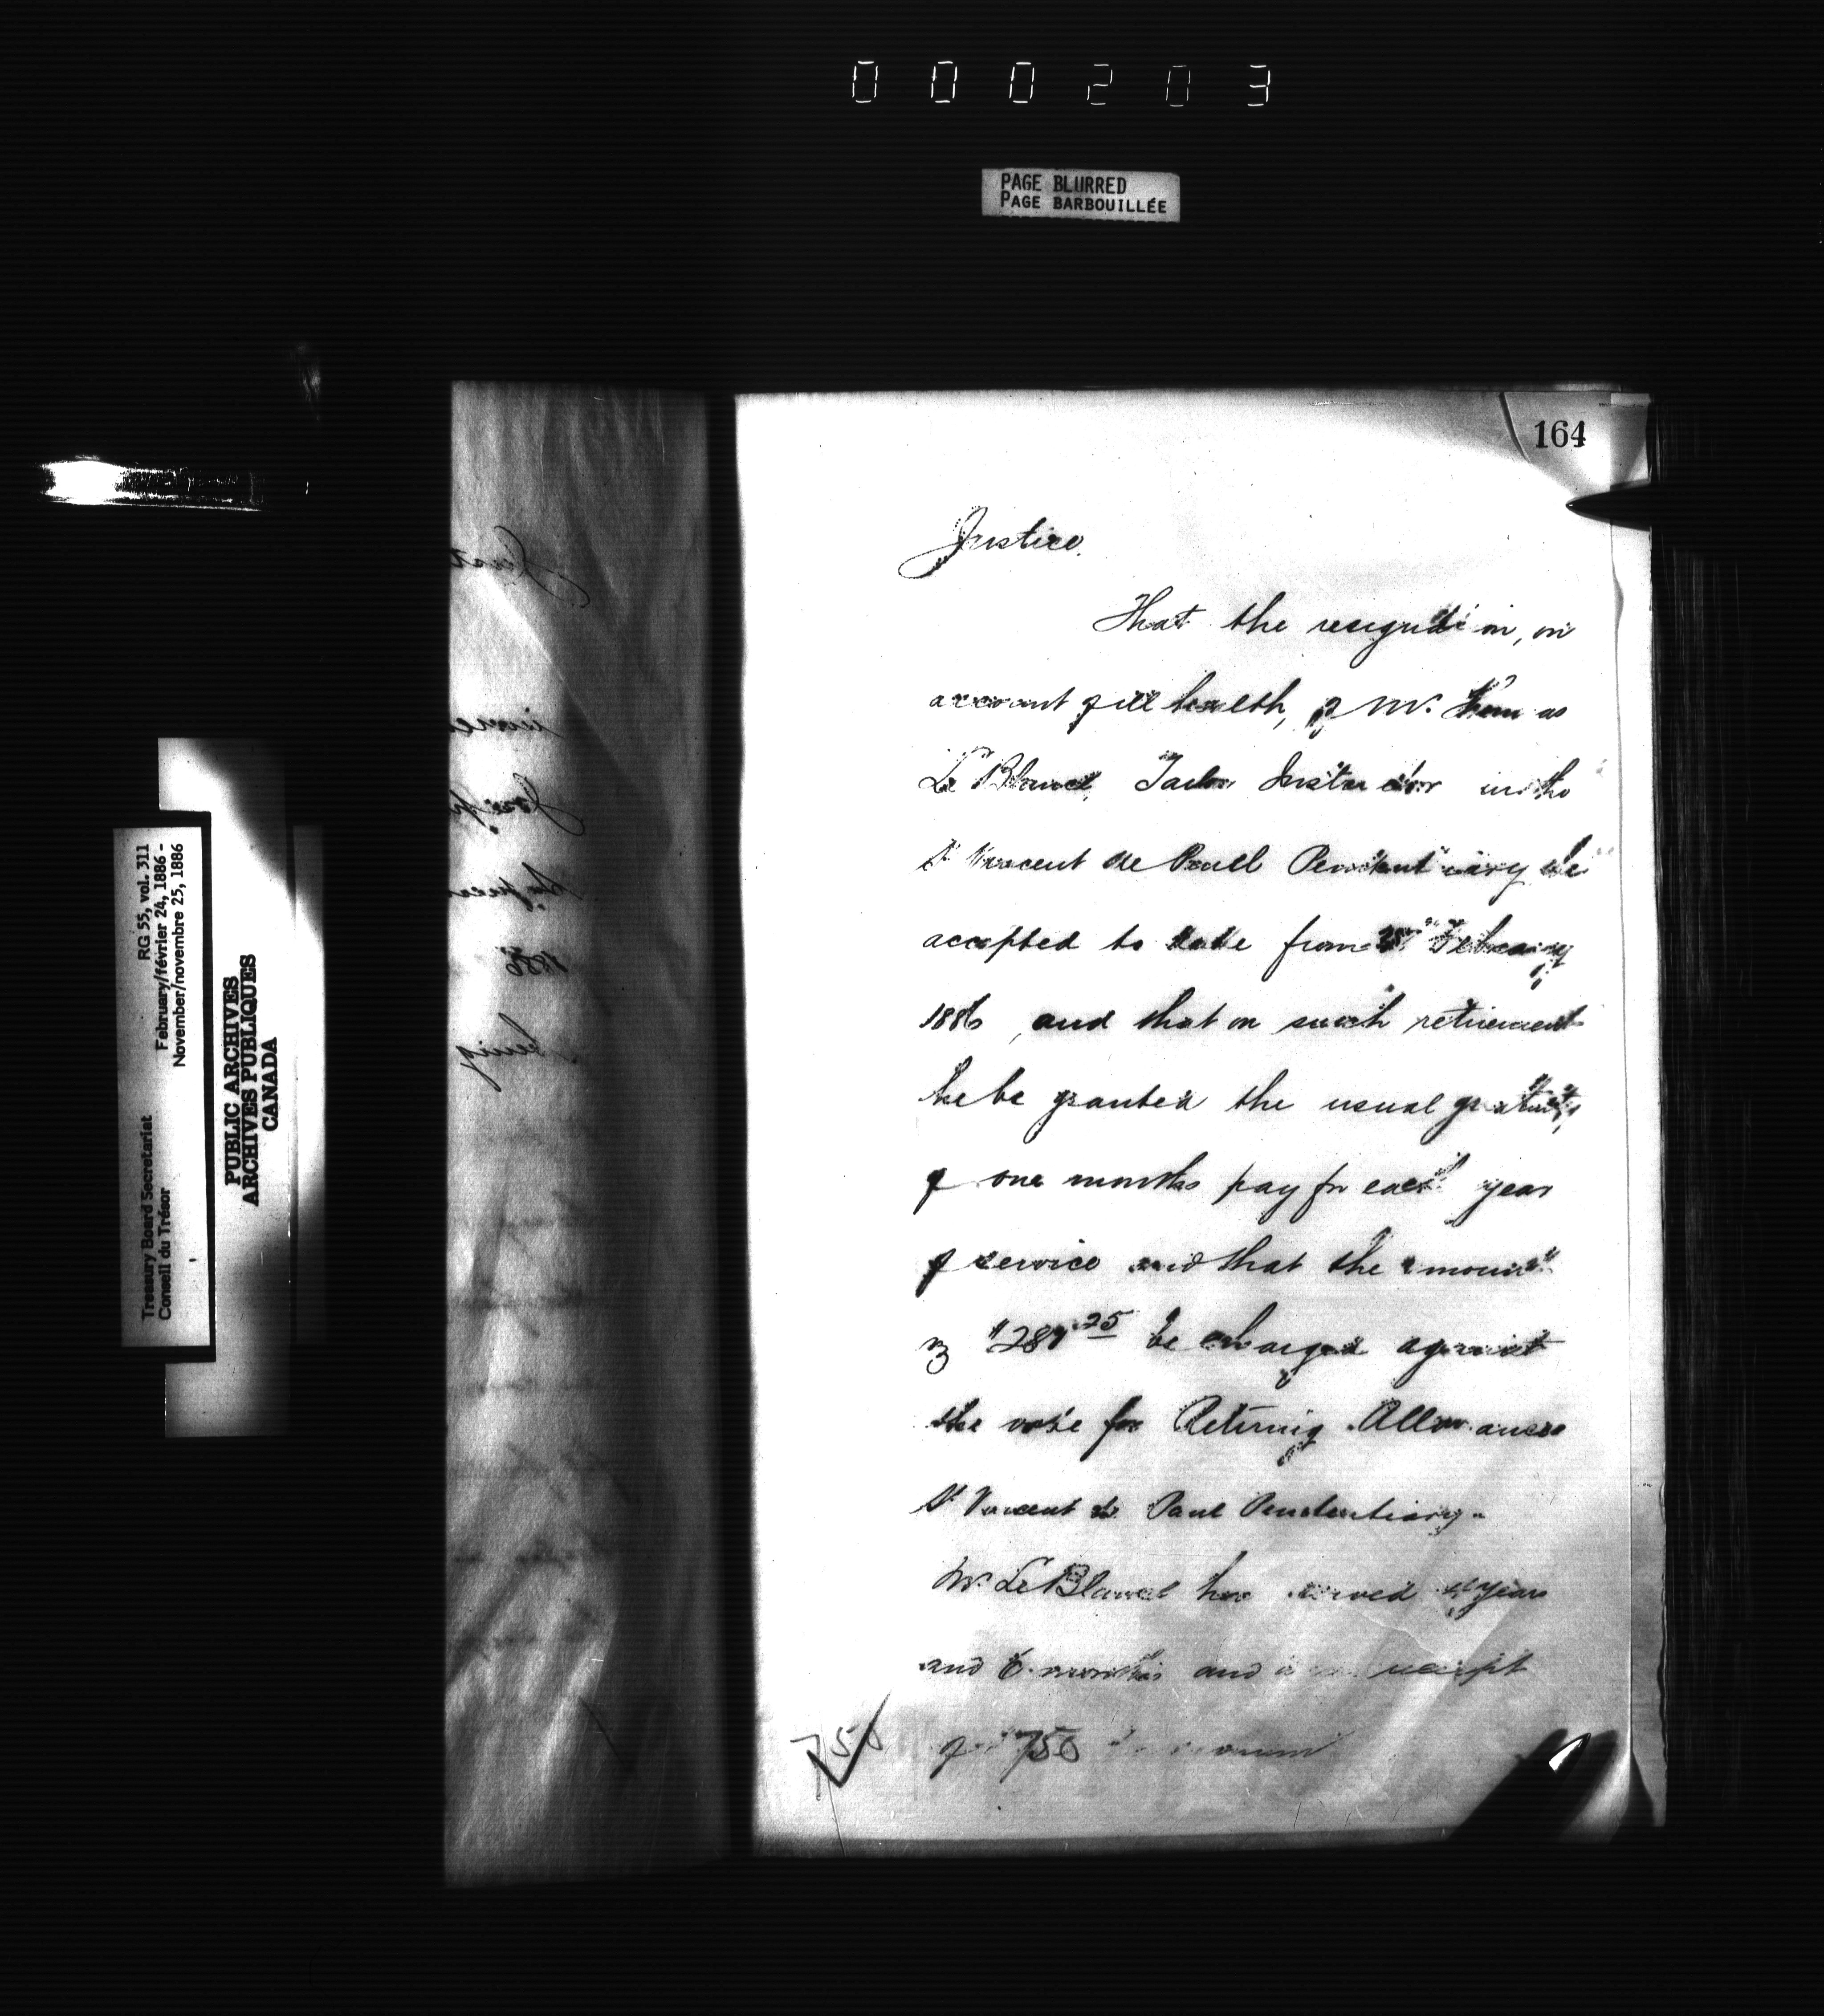 000203
PAGE BLURRED
PAGE BARBOUILLÉE
Treasury Board Secretariat RG 55, vol. 311
Conseil du Trésor February/février 24, 1886 -
November/novembre 25, 1886
PUBLIC ARCHIVES
ARCHIVES PUBLIQUES
CANADA
164
Justice.
That the resignation, on
account of ill health, of Mr. as
Le Blancl, Tailor Instructor in the
St Vincent de Paul Penitentiary be
accepted to date from February
1886, and that on such retirement
he be granted the usual gratuity,
of one months pay for each year
of service and that the amount
of $ be charged against
the vote for Retiring Allowances
St Vincent de Paul Penitentiary.
Mr. Le Blancl has served years
and 6 months and receipt
of 750 annum
750